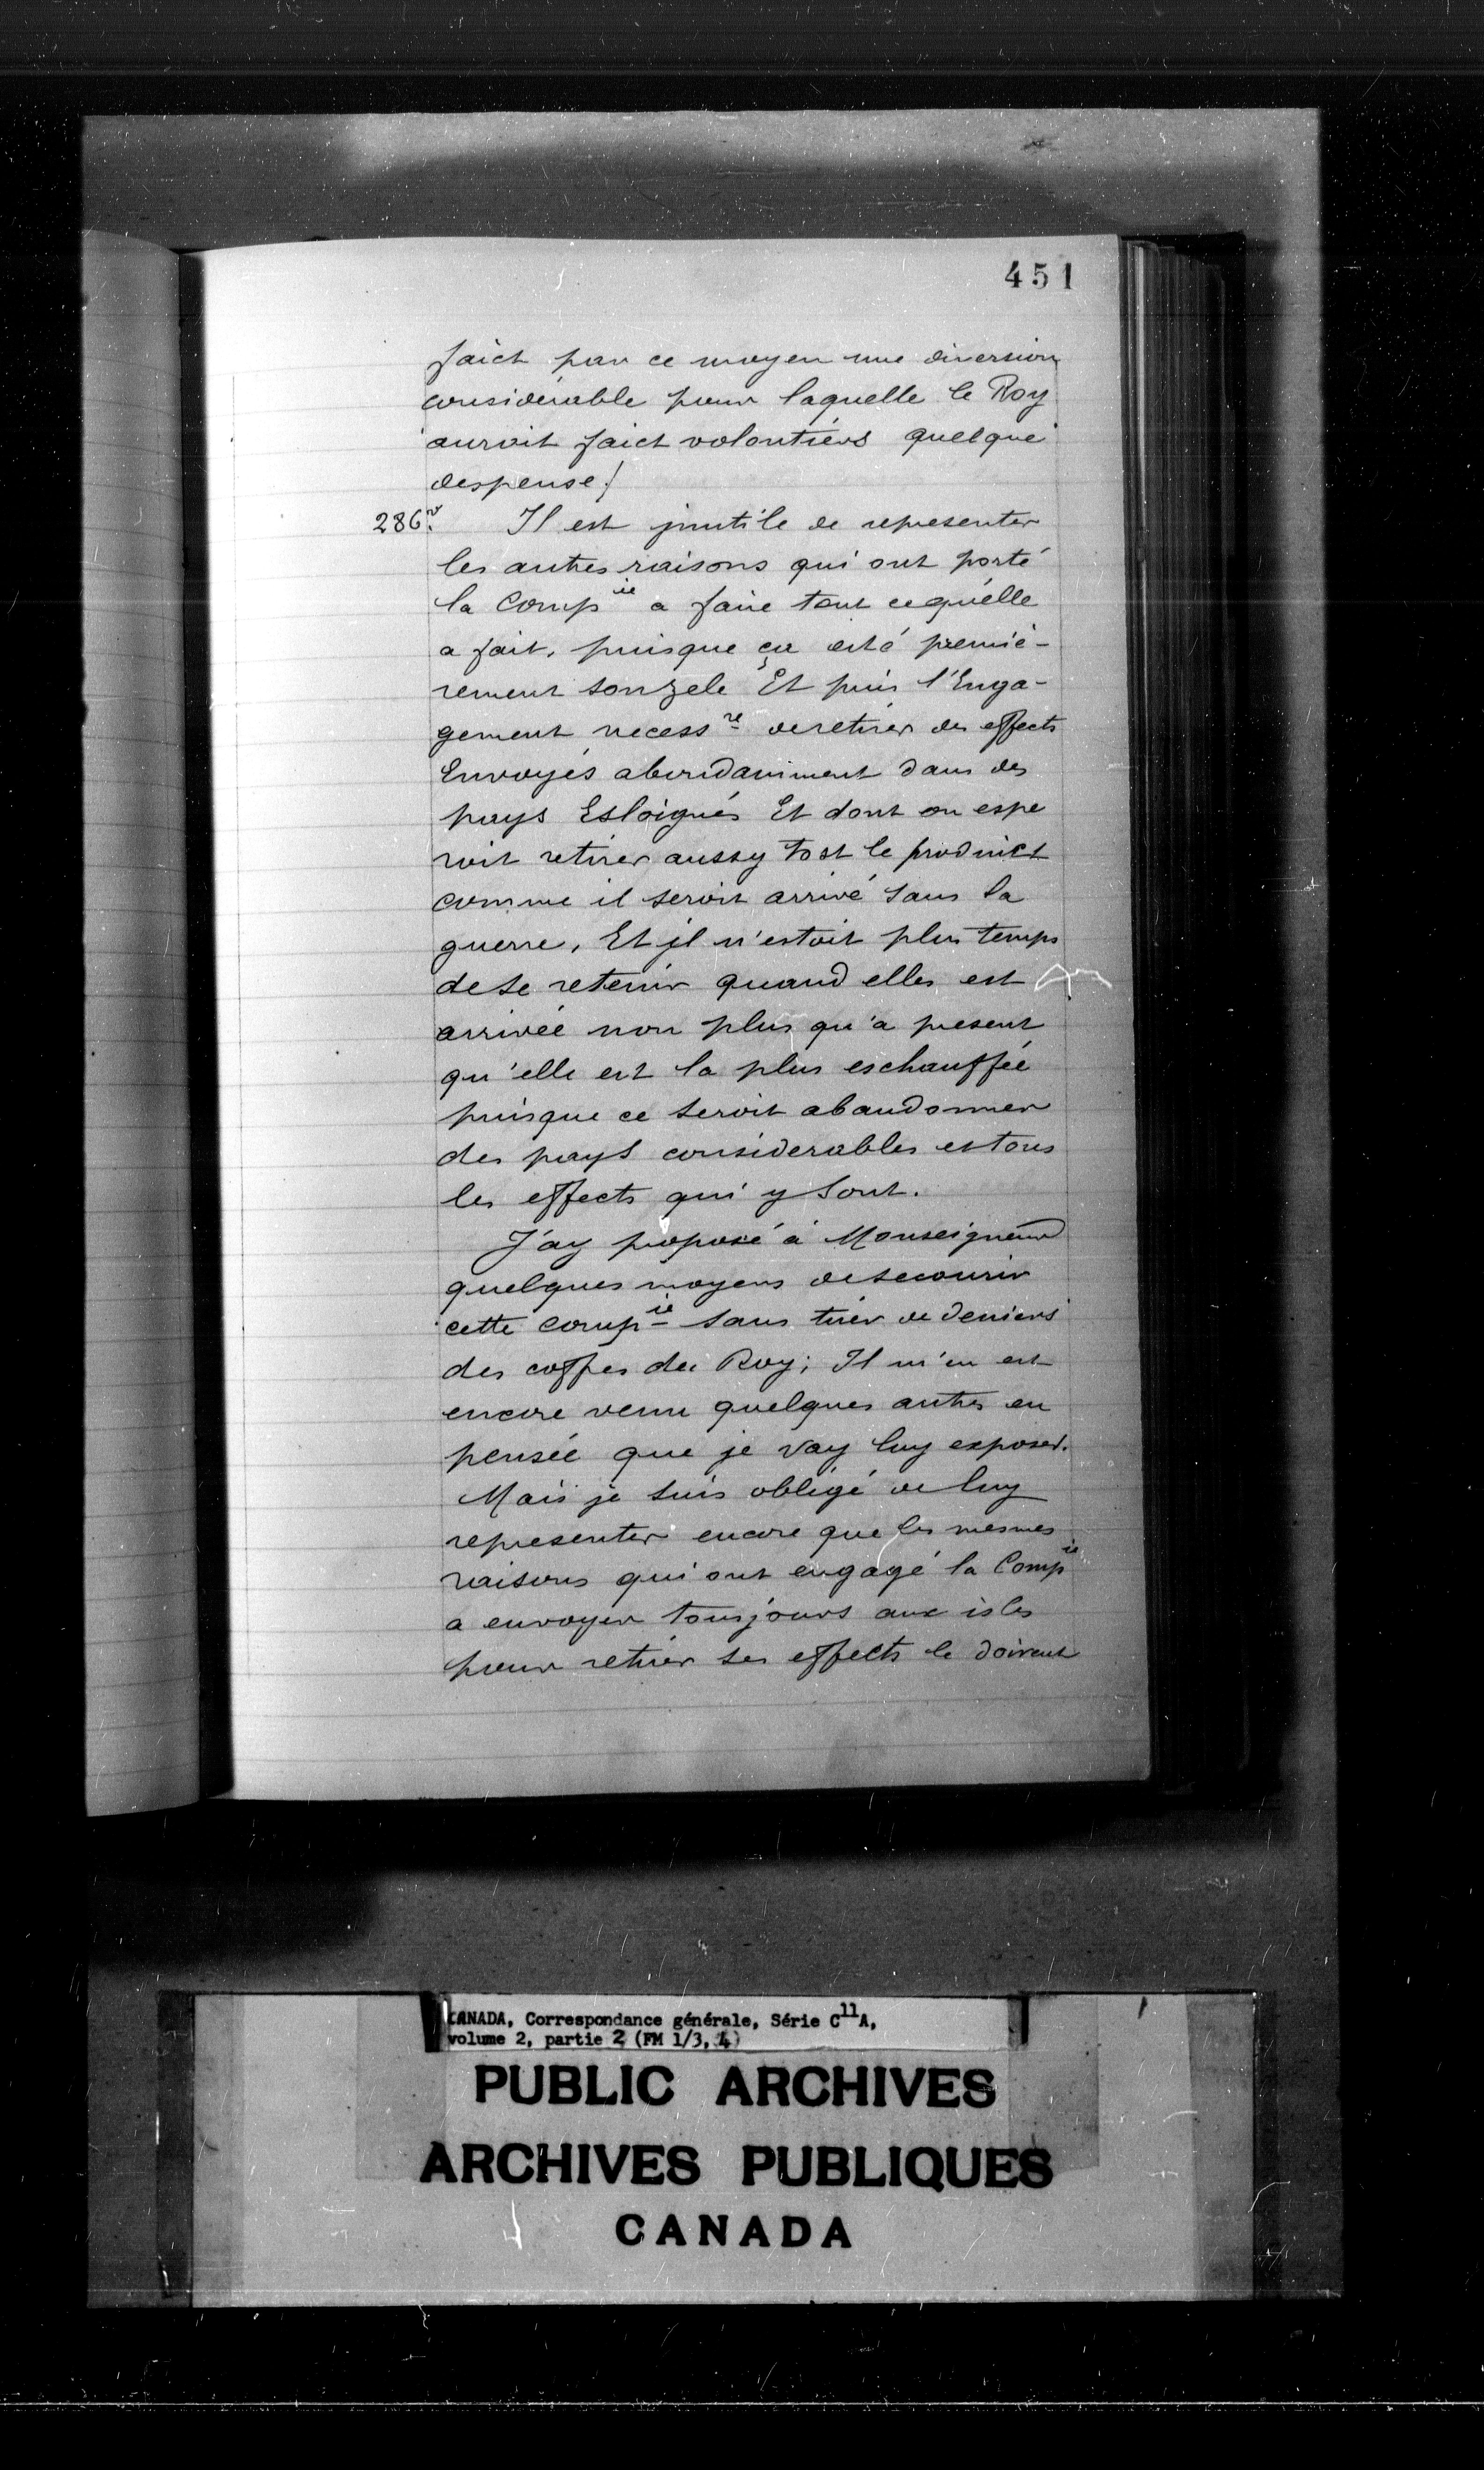 451
faict par ce moyen une diversion
considérable pour laquelle le Roy
auroit faict volontiers quelque
despense/
286v. Il est jnutile de representer
les autres raisons qui ont porté
la Compie a faire tout cequ'elle
a fait, puisque ça esté premiè-
rement sonzele Et puis l'Enga-
gement necessre deretirer des effects
Envoyés abondamment dans des
pays Esloignés Et dont on espe
roit retirer aussy tost le produict
comme il seroit arrivé sans la
guerre, Et jl n'estoit plus temps
dese retenir quand elles est
arrivée non plus qu'a present
qu'elle est la plus eschauffée
puisque ce seroit abandonner
des pays considerables et tous
les effects qui y sont.
J'ay proposé à Monseigneur
quelques moyens desecourir
cette compie sans tirer de deniers
des coffres du Roy; Il m'en est
encore venu quelques autres en
pensée que je vay luy exposer.
Mais je suis obligé de luy
representer encore que les mesmes
raisons qui ont engagé la Compie
a envoyer tousjours aux isles
pour retirer ses effects le doivent
CANADA, Correspondance générale, Série C11A,
volume 2, partie 2 (FM 1/3, 4)
PUBLIC ARCHIVES
ARCHIVES PUBLIQUES
CANADA